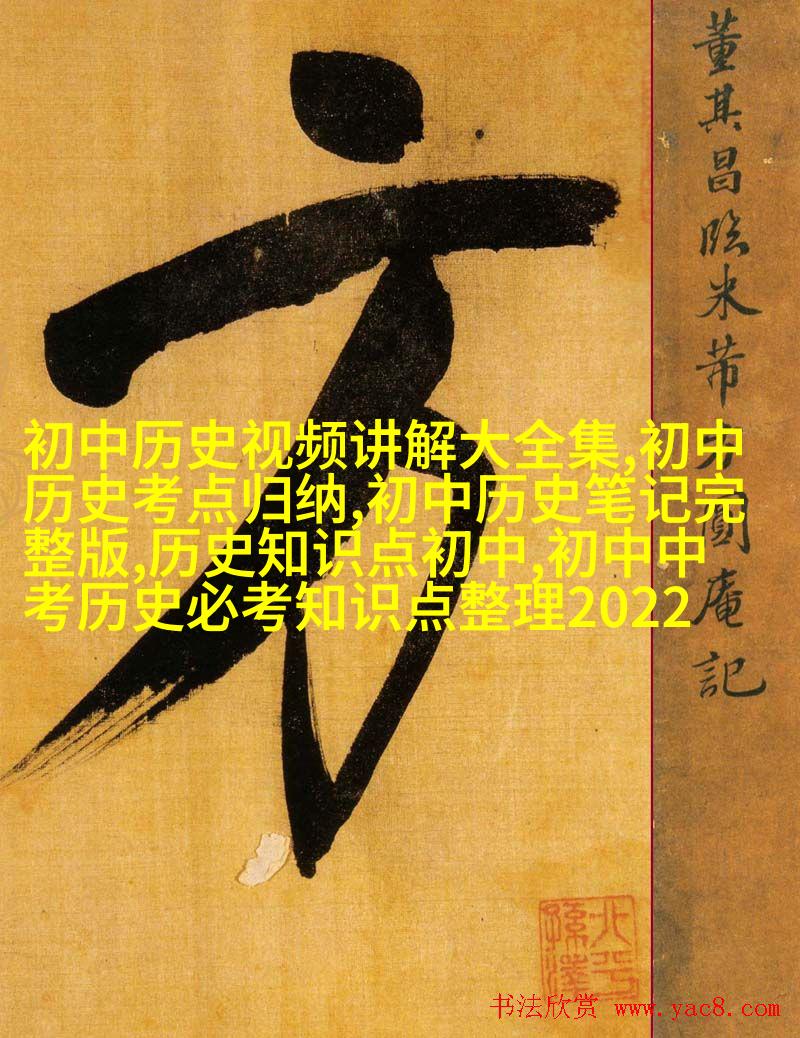 方
董其昌临米芾方圓庵記
初中历史视频讲解大全集,初中
历史考点归纳,初中历史笔记完
整版,历史知识点初中,初中中
考历史必考知识点整理2022
北平
孫澤
书法欣赏 www.yac8.com